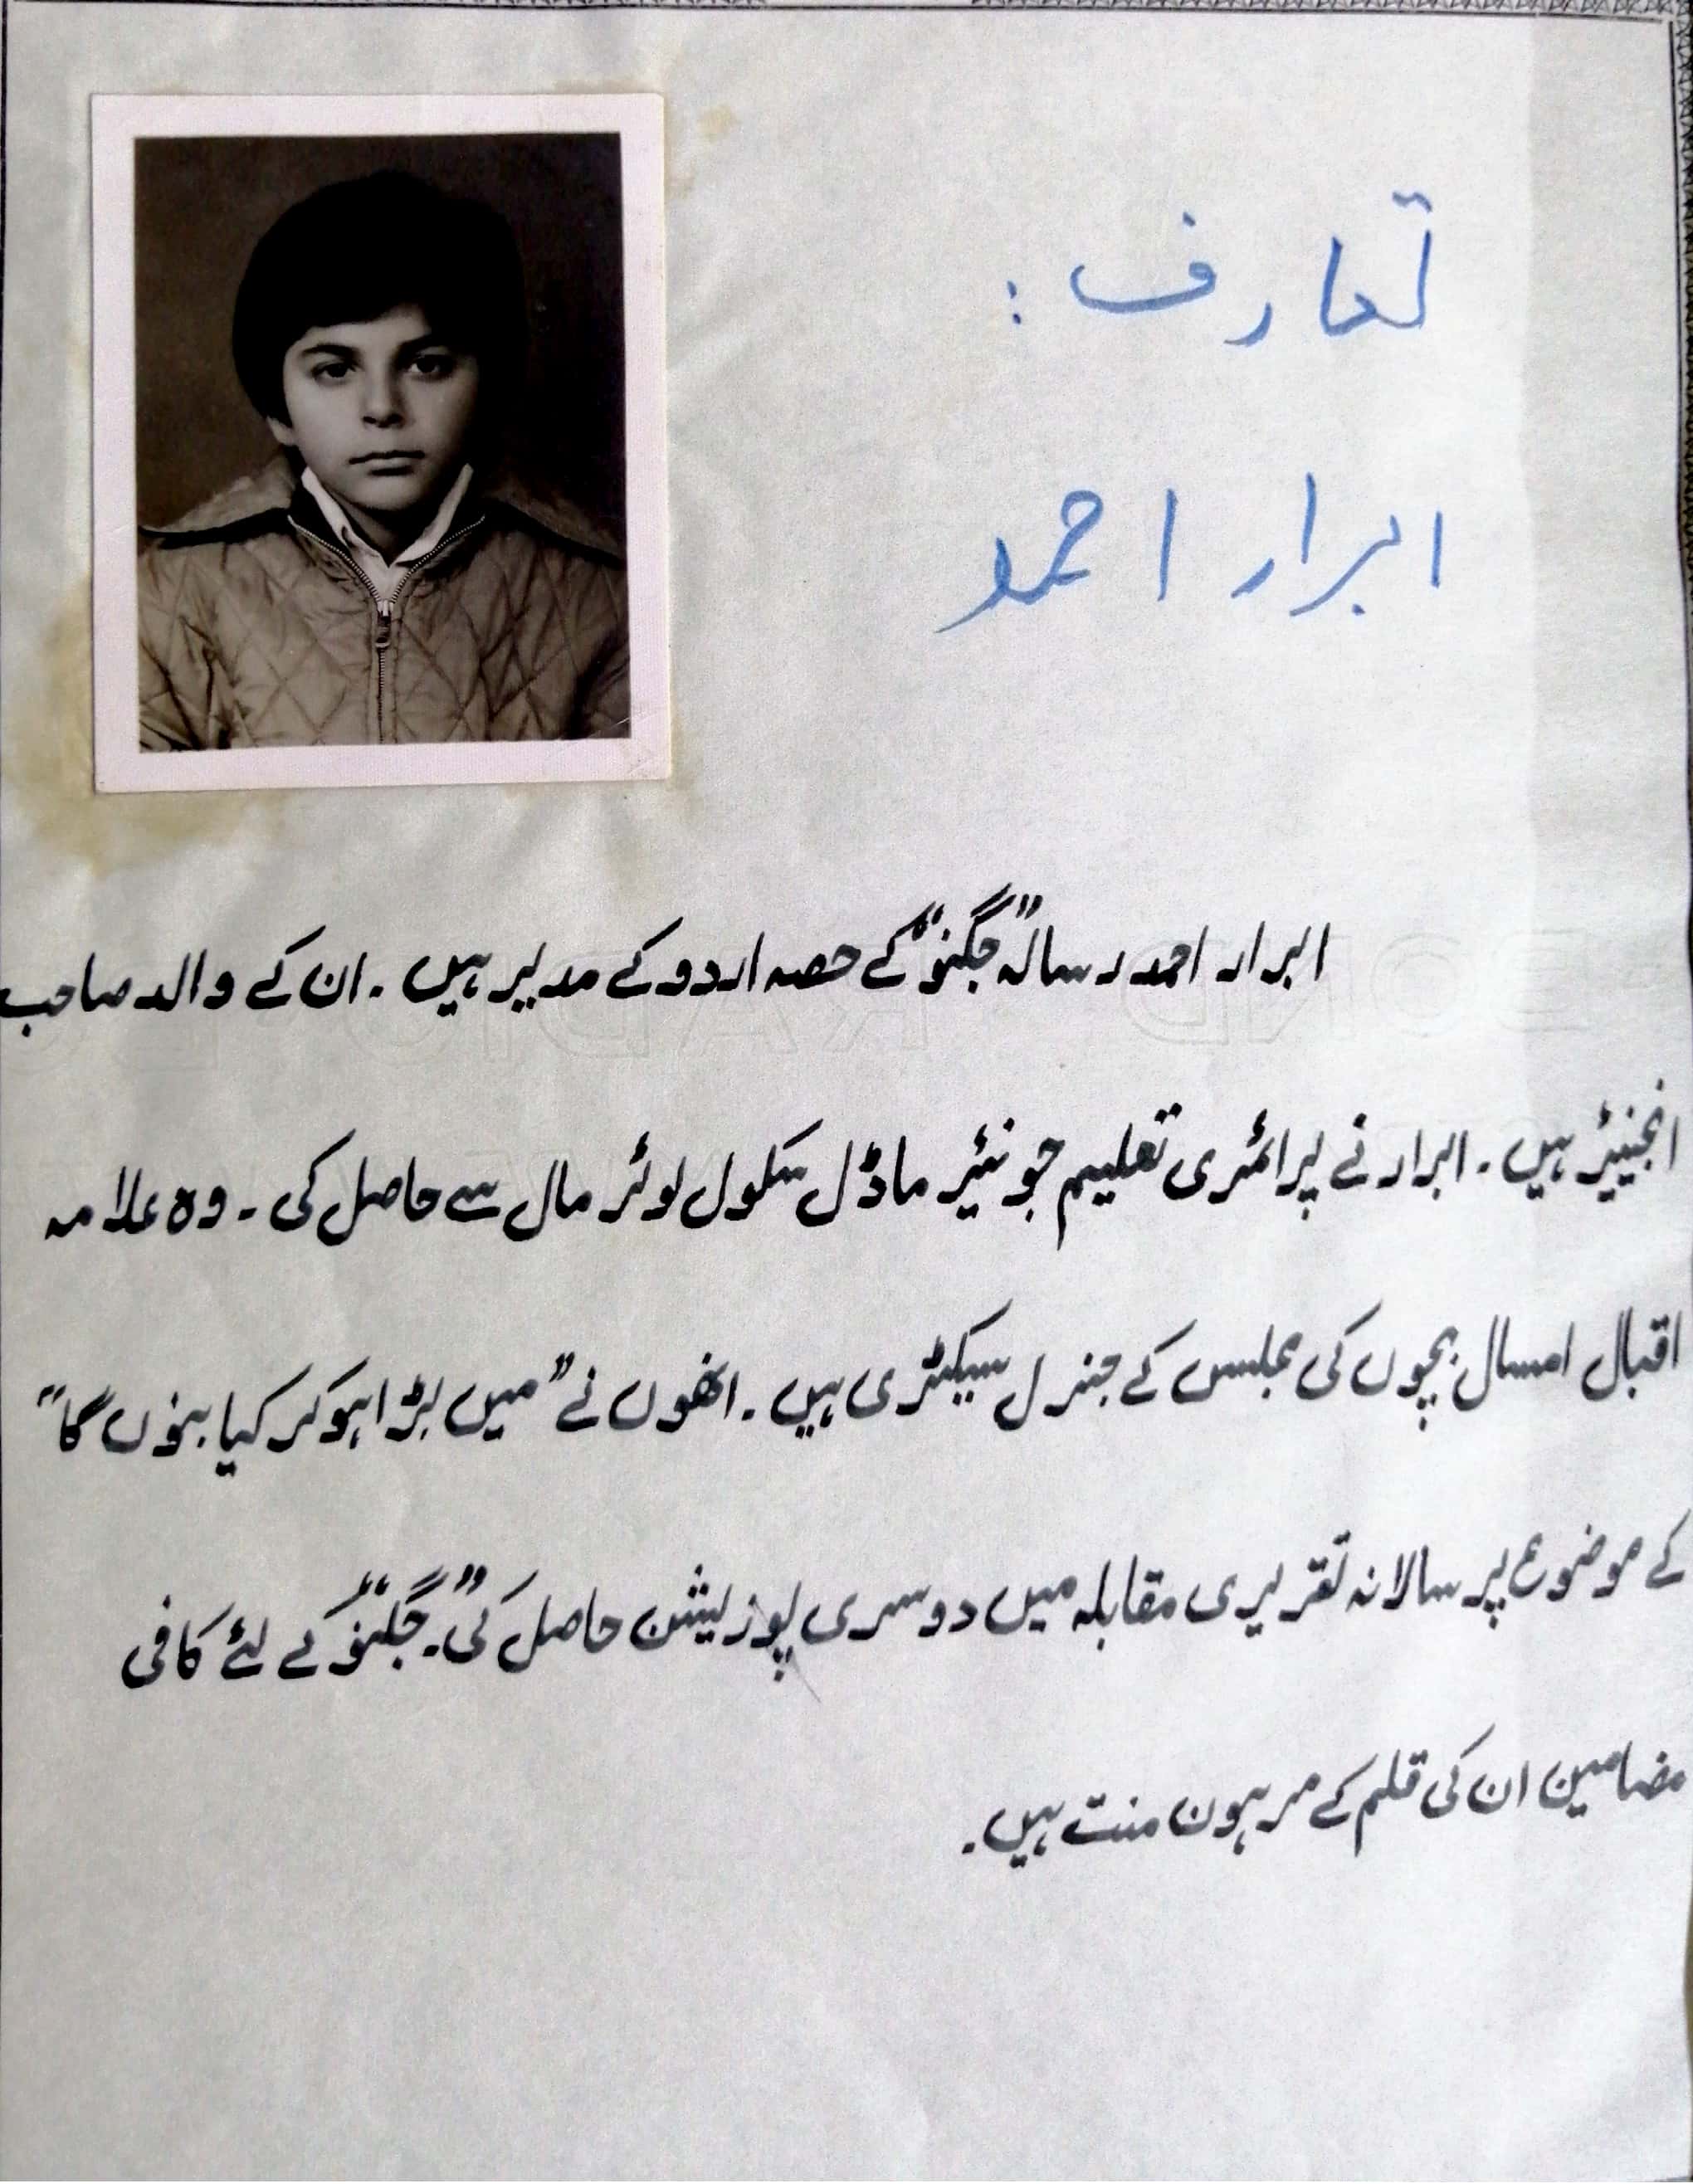 تعارف :
ابرار احمد
ابرار احمد رسالہ "جگنو" کے حصہ اردو کے مدیر ہیں ۔ ان کے والد صاحب
انجینیئر ہیں ۔ ابرار نے پرائمری تعلیم جونئیر ماڈل سکول لوئر مال سے حاصل کی ۔ وہ علامہ
اقبال امسال بچوں کی مجلس کے جنرل سیکٹری ہیں ۔ انھوں نے "میں بڑا ہو کر کیا بنوں گا"
کے موضوع پر سالانہ تقریری مقابلہ میں دوسری پوزیشن حاصل کی ۔ "جگنو" کے لئے کافی
مضامین ان کی قلم کے مرہون منت ہیں ۔